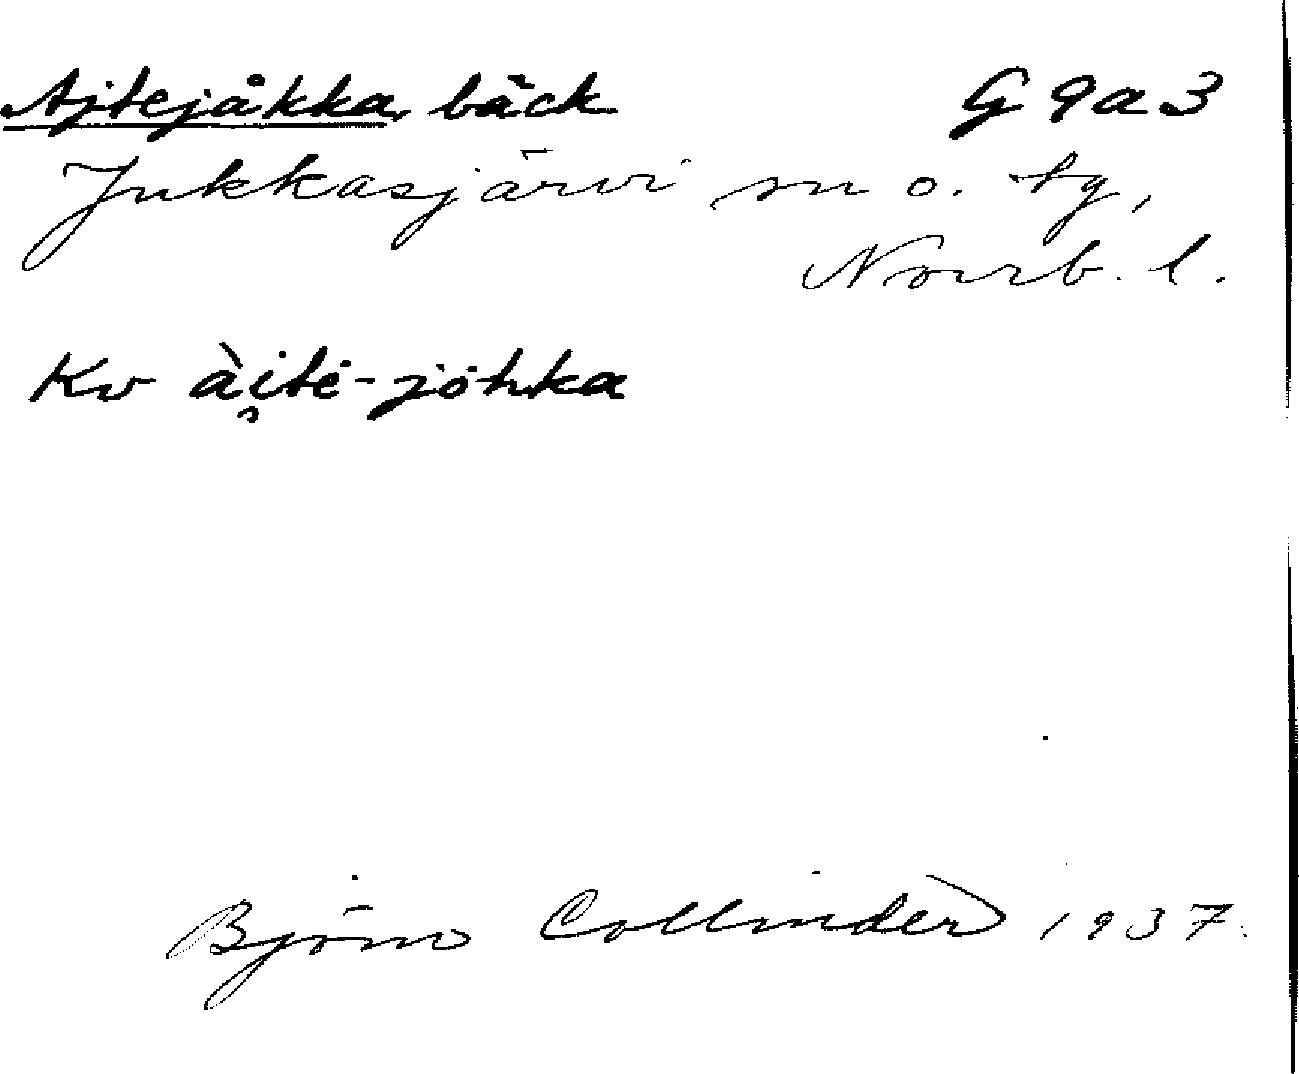 Ajtejåkka, bäck G 9a3
Jukkasjärvi sn o. tg,
Norrb. l.
Kv ài̯tė-jȯhka
Björn Collinder 1937.